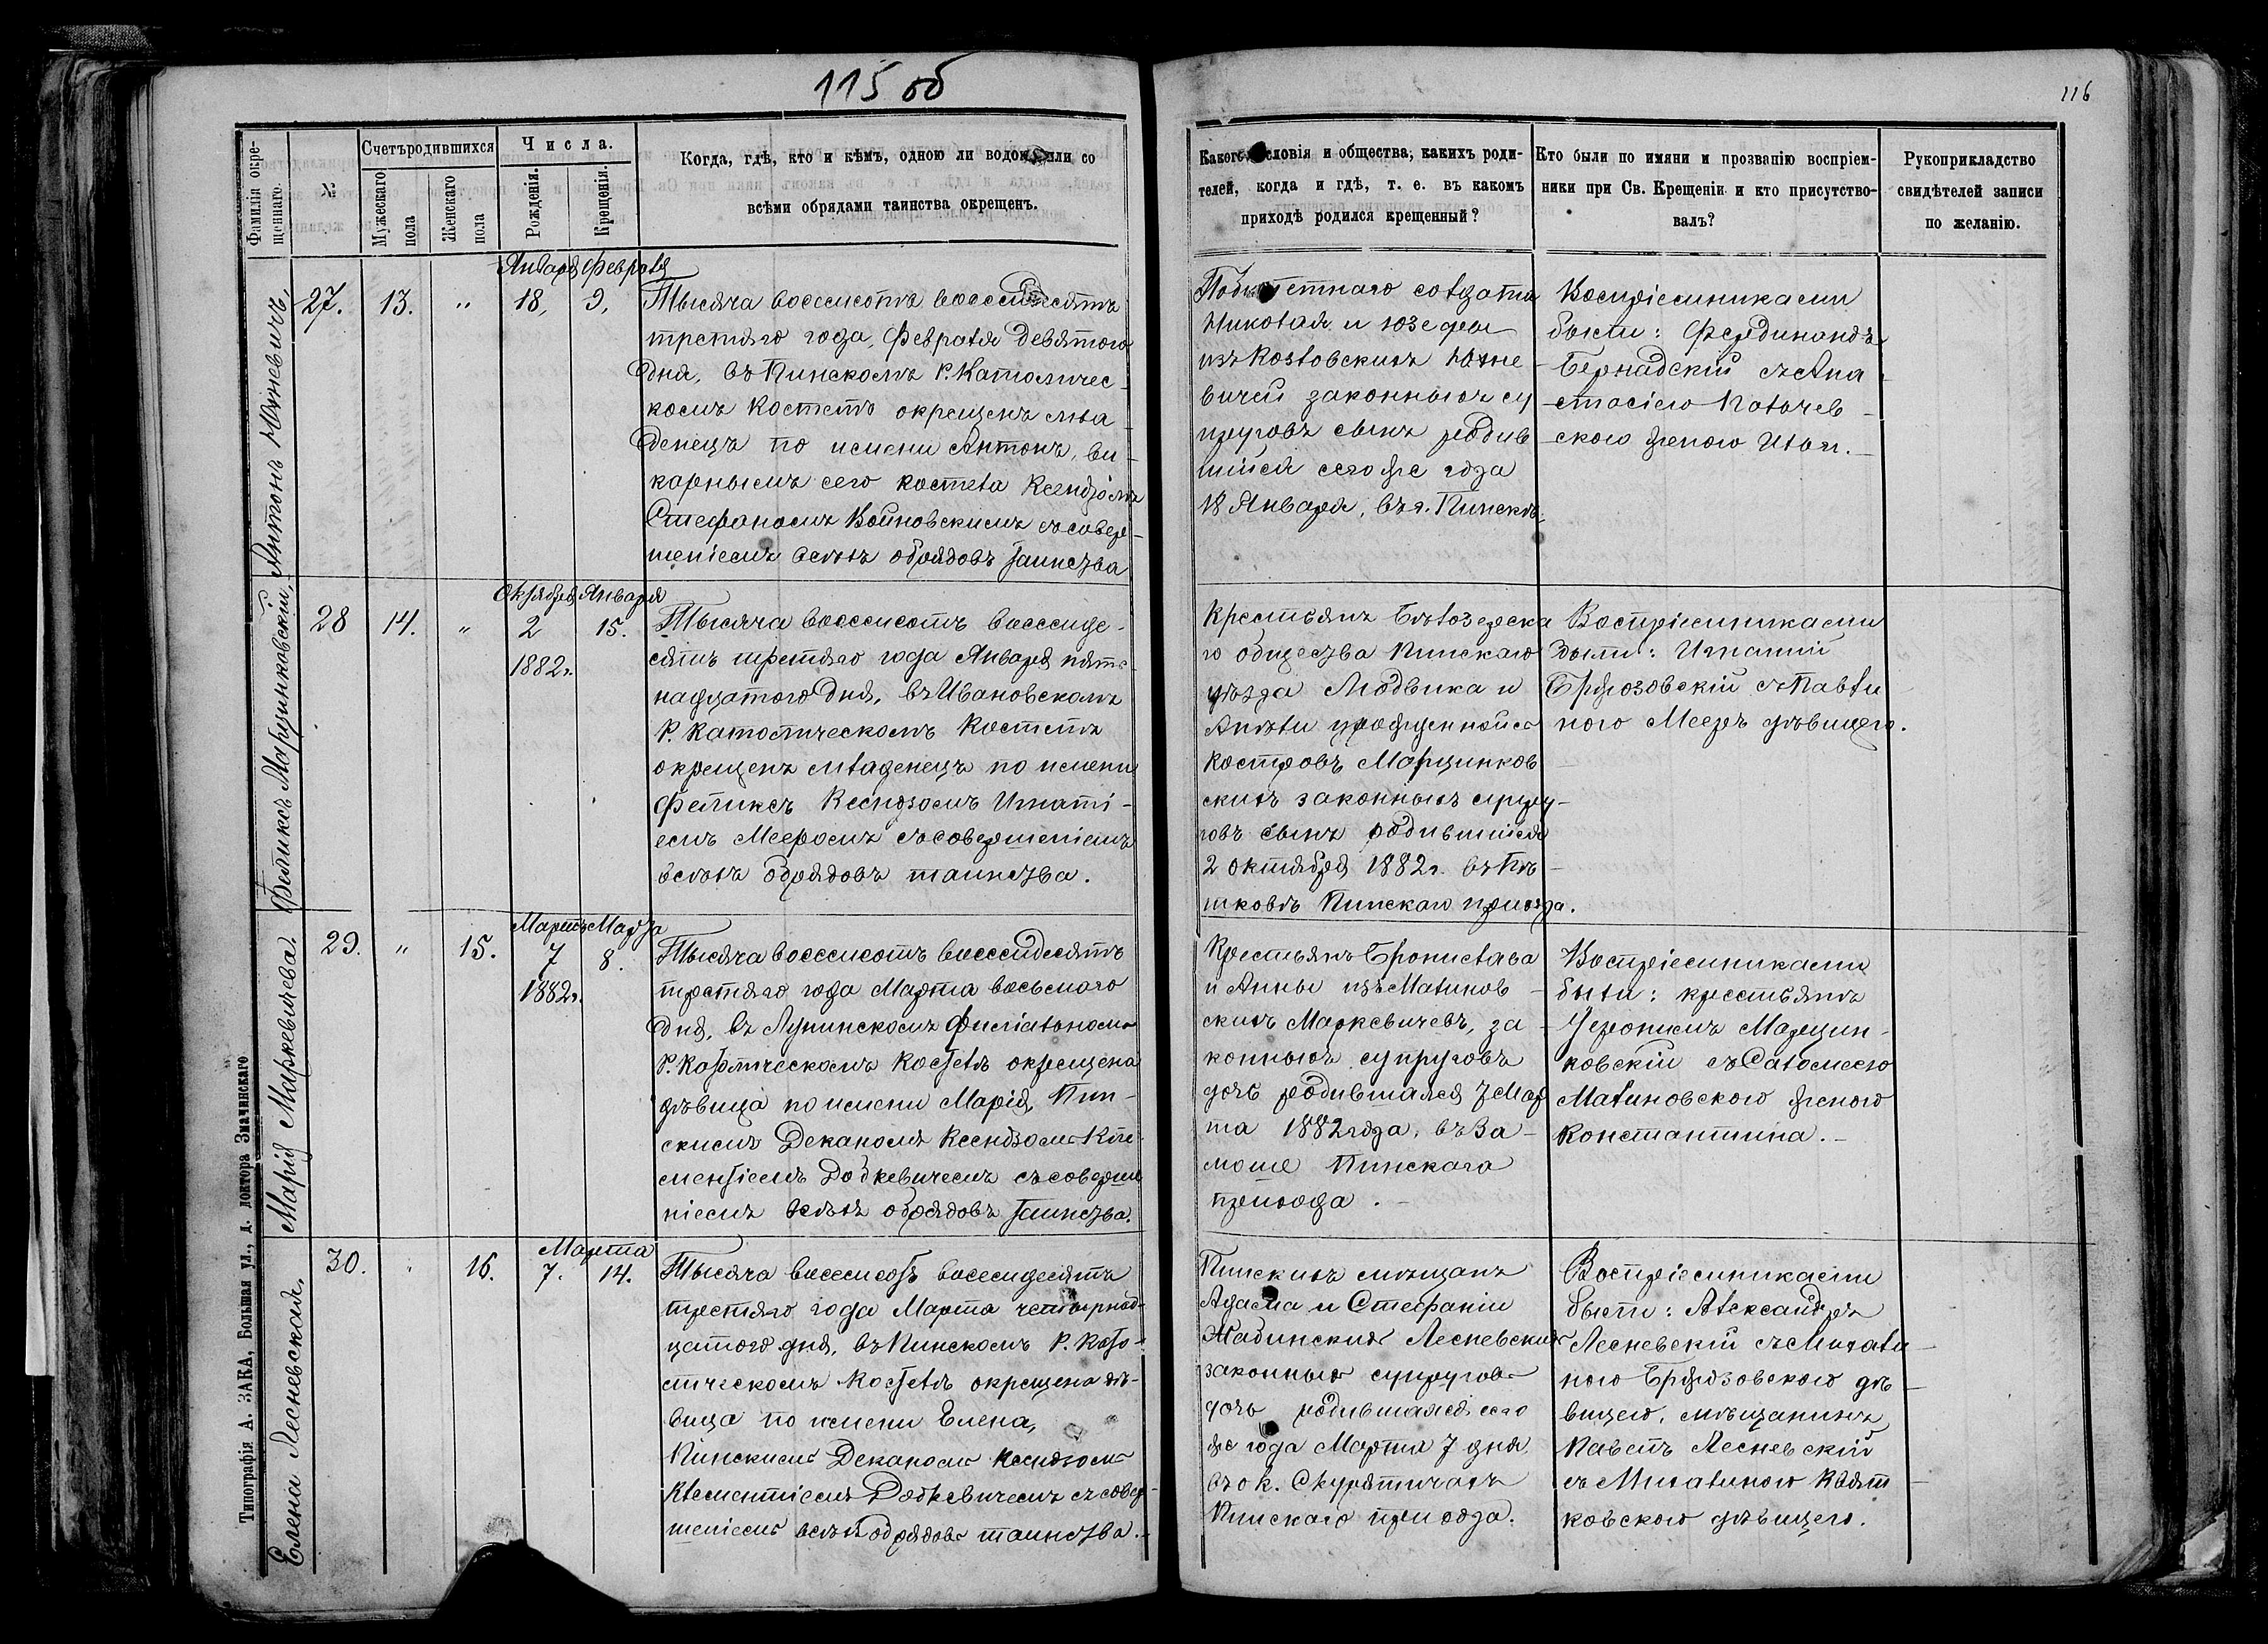 115 об
116
Фамилія окре-
щеннаго
№
Счетъ родившихся
Мужескаго
пола
Женскаго
пола
Числа.
Рожденія.
Крещенія.
Когда, гдѣ, кто и кѣмъ, одною ли водою или со
всѣми обрядами таинства окрещенъ.
Какого сословія и общества, какихъ роди-
телей, когда и гдѣ, т. е. въ какомъ
приходѣ родился крещенный?
Кто были по имяни и прозванію воспріем-
ники при Св. Крещеніи и кто присутство-
валъ?
Рукоприкладство
свидѣтелей записи
по желанію.
Антонъ Южневичъ.
27. 13. " Января 18, Февраля 9,
Тысяча восемсотъ восемдесятъ
третьяго года, Февраля девятого
дня, въ Пинскомъ Р. Католичес-
комъ Костелѣ окрещенъ мла-
денецъ по имени Антонъ, ви-
карнымъ сего костела Ксендзомъ
Стефаномъ Войновскимъ съ совер-
шеніемъ всѣхъ обрядовъ таинства
солдата
Николая и Юзефы
изъ Козловскихъ Южне-
вичей законныхъ су
пруговъ сынъ родив
шійся сего же года
18 Января, въ г. Пинскѣ.
Воспріемниками
были: Фердинандъ
Бернадскій съ Ана
стасіею
скою женою
Феликсъ Марцинковскій.
28 14. " Октября 2 1882г. Января 15.
Тысяча восемсотъ восемде-
сятъ третьяго года Января пят-
надцатого дня, въ Ивановскомъ
Р. Католическомъ Костелѣ
окрещенъ младенецъ по имени
Феликсъ Ксендзомъ Игнаті-
емъ Мееромъ съ совершеніемъ
всѣхъ обрядовъ таинства.
Крестьянъ
го общества Пинскаго
уѣзда Людвика и
Анели урожденной
Костровъ Марцинков
скихъ законныхъ супру-
говъ сынъ родившійся
2 октября 1882г. въ Пѣ
шковѣ Пинскаго прихода.
Воспріемниками
были: Игнатій
Бржозовскій съ Павли
ною Мееръ дѣвицею.
Марія Маркевичева.
29. " 15. Марта 7 1882г. Марта 8.
Тысяча восемсотъ восемдесятъ
третьяго года Марта восьмого
дня, въ Лунинскомъ Филіальномъ
Р. Католическомъ Костелѣ окрещена
дѣвица по имени Марія, Пин-
скимъ Деканомъ Ксендзомъ Кле-
ментіемъ Родкевичемъ съ соверше
ніемъ всѣхъ обрядовъ таинства.
Крестьянъ Бронислава
и Анны изъ Малинов-
скихъ Маркевичевъ, за-
конныхъ супруговъ
дочь родившаяся 7 Мар
та 1882 года, въ За-
мошье Пинскаго
прихода.
Воспріемниками
были: крестьянъ
Іеронимъ Марцин-
ковскій съ Саломеею
Малиновскою женою
Константина.
Елена Лесневская.
30. " 16. Марта 7. 14.
Тысяча восемсотъ восемдесятъ
третьяго года Марта четырнад-
цатого дня, въ Пинскомъ Р. Като-
лическомъ Костелѣ окрещена дѣ-
вица по имени Елена,
Пинскимъ Деканомъ Ксендзомъ
Клементіемъ Родкевичемъ съ совер-
шеніемъ всѣхъ обрядовъ таинства.
Пинскихъ мѣщанъ
Адама и Стефаніи
Лесневскихъ
законныхъ супруговъ
дочь родившаяся сего
же года Марта 7 дня
въ ок. Скурятичахъ
Пинскаго прихода.
Воспріемниками
были: Александръ
Лесневскій съ Михали
ною Бржозовскою дѣ-
вицею, мѣщанинъ
Павелъ Лесневскій
съ Михалиною
ковскою дѣвицею.
Типографія А. ЗАКА, Большая ул., д. доктора Значинскаго